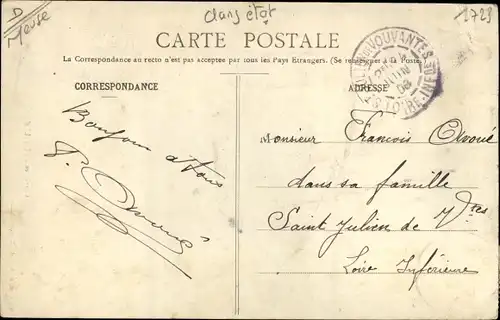 D
Meuse
dans état
1729
CARTE POSTALE
La Correspondance au recto n'est pas acceptée par tous les Pays Etrangers. (Se renseigner à la Poste)
CORRESPONDANCE
ADRESSE
VOUVANTES
JUIN
08
LOIRE-INFRE
Bonjour
à tous
Monsieur François
dans sa famille
Saint Julien de Vtes
Loire Inférieure